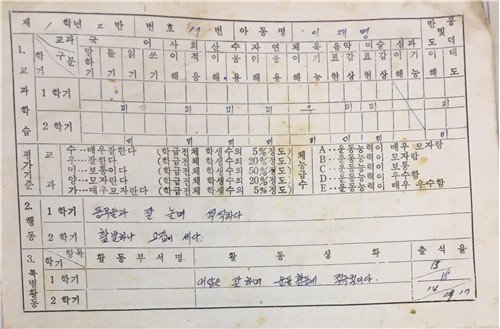 제 1 학년 2 반 번호 17 번 아동명 이재명
1. 교과학습
교과 구분 학기 국어 사회 산수 자연 체육 음악 미술 실과 반공 및 도덕
말하기 듣기 읽기 쓰기 이해 적용 이해 이해 기능 표현 감상 표현 감상 이해 기능 이해 태도
1 학기
미 미 미 미 미 우 미 미 미
2 학기
미 미 미 미 미
평가기준
교과 체능급수
수…매우잘한다 (학급전체 학생수의 5%정도) A…운동능력이 매우 모자람
우…잘한다 (학급전체 학생수의 20%정도) B…운동능력이 모자람
미…보통이다 (학급전체 학생수의 50%정도) C…운동능력이 보통
양…모자란다 (학급전체 학생수의 20%정도) D…운동능력이 우수함
가…매우모자란다 (학급전체 학생수의 5%정도) E…운동능력이 매우 우수함
2. 행동
1 학기 동무들과 잘 놀며 씩씩하다
2 학기 활발하나 고집이 세다
3. 특별활동
항목 학기 활동부서명 활동상황 출석율
1 학기 대답을 잘하며 운동 활동에 적극적이다.
2 학기